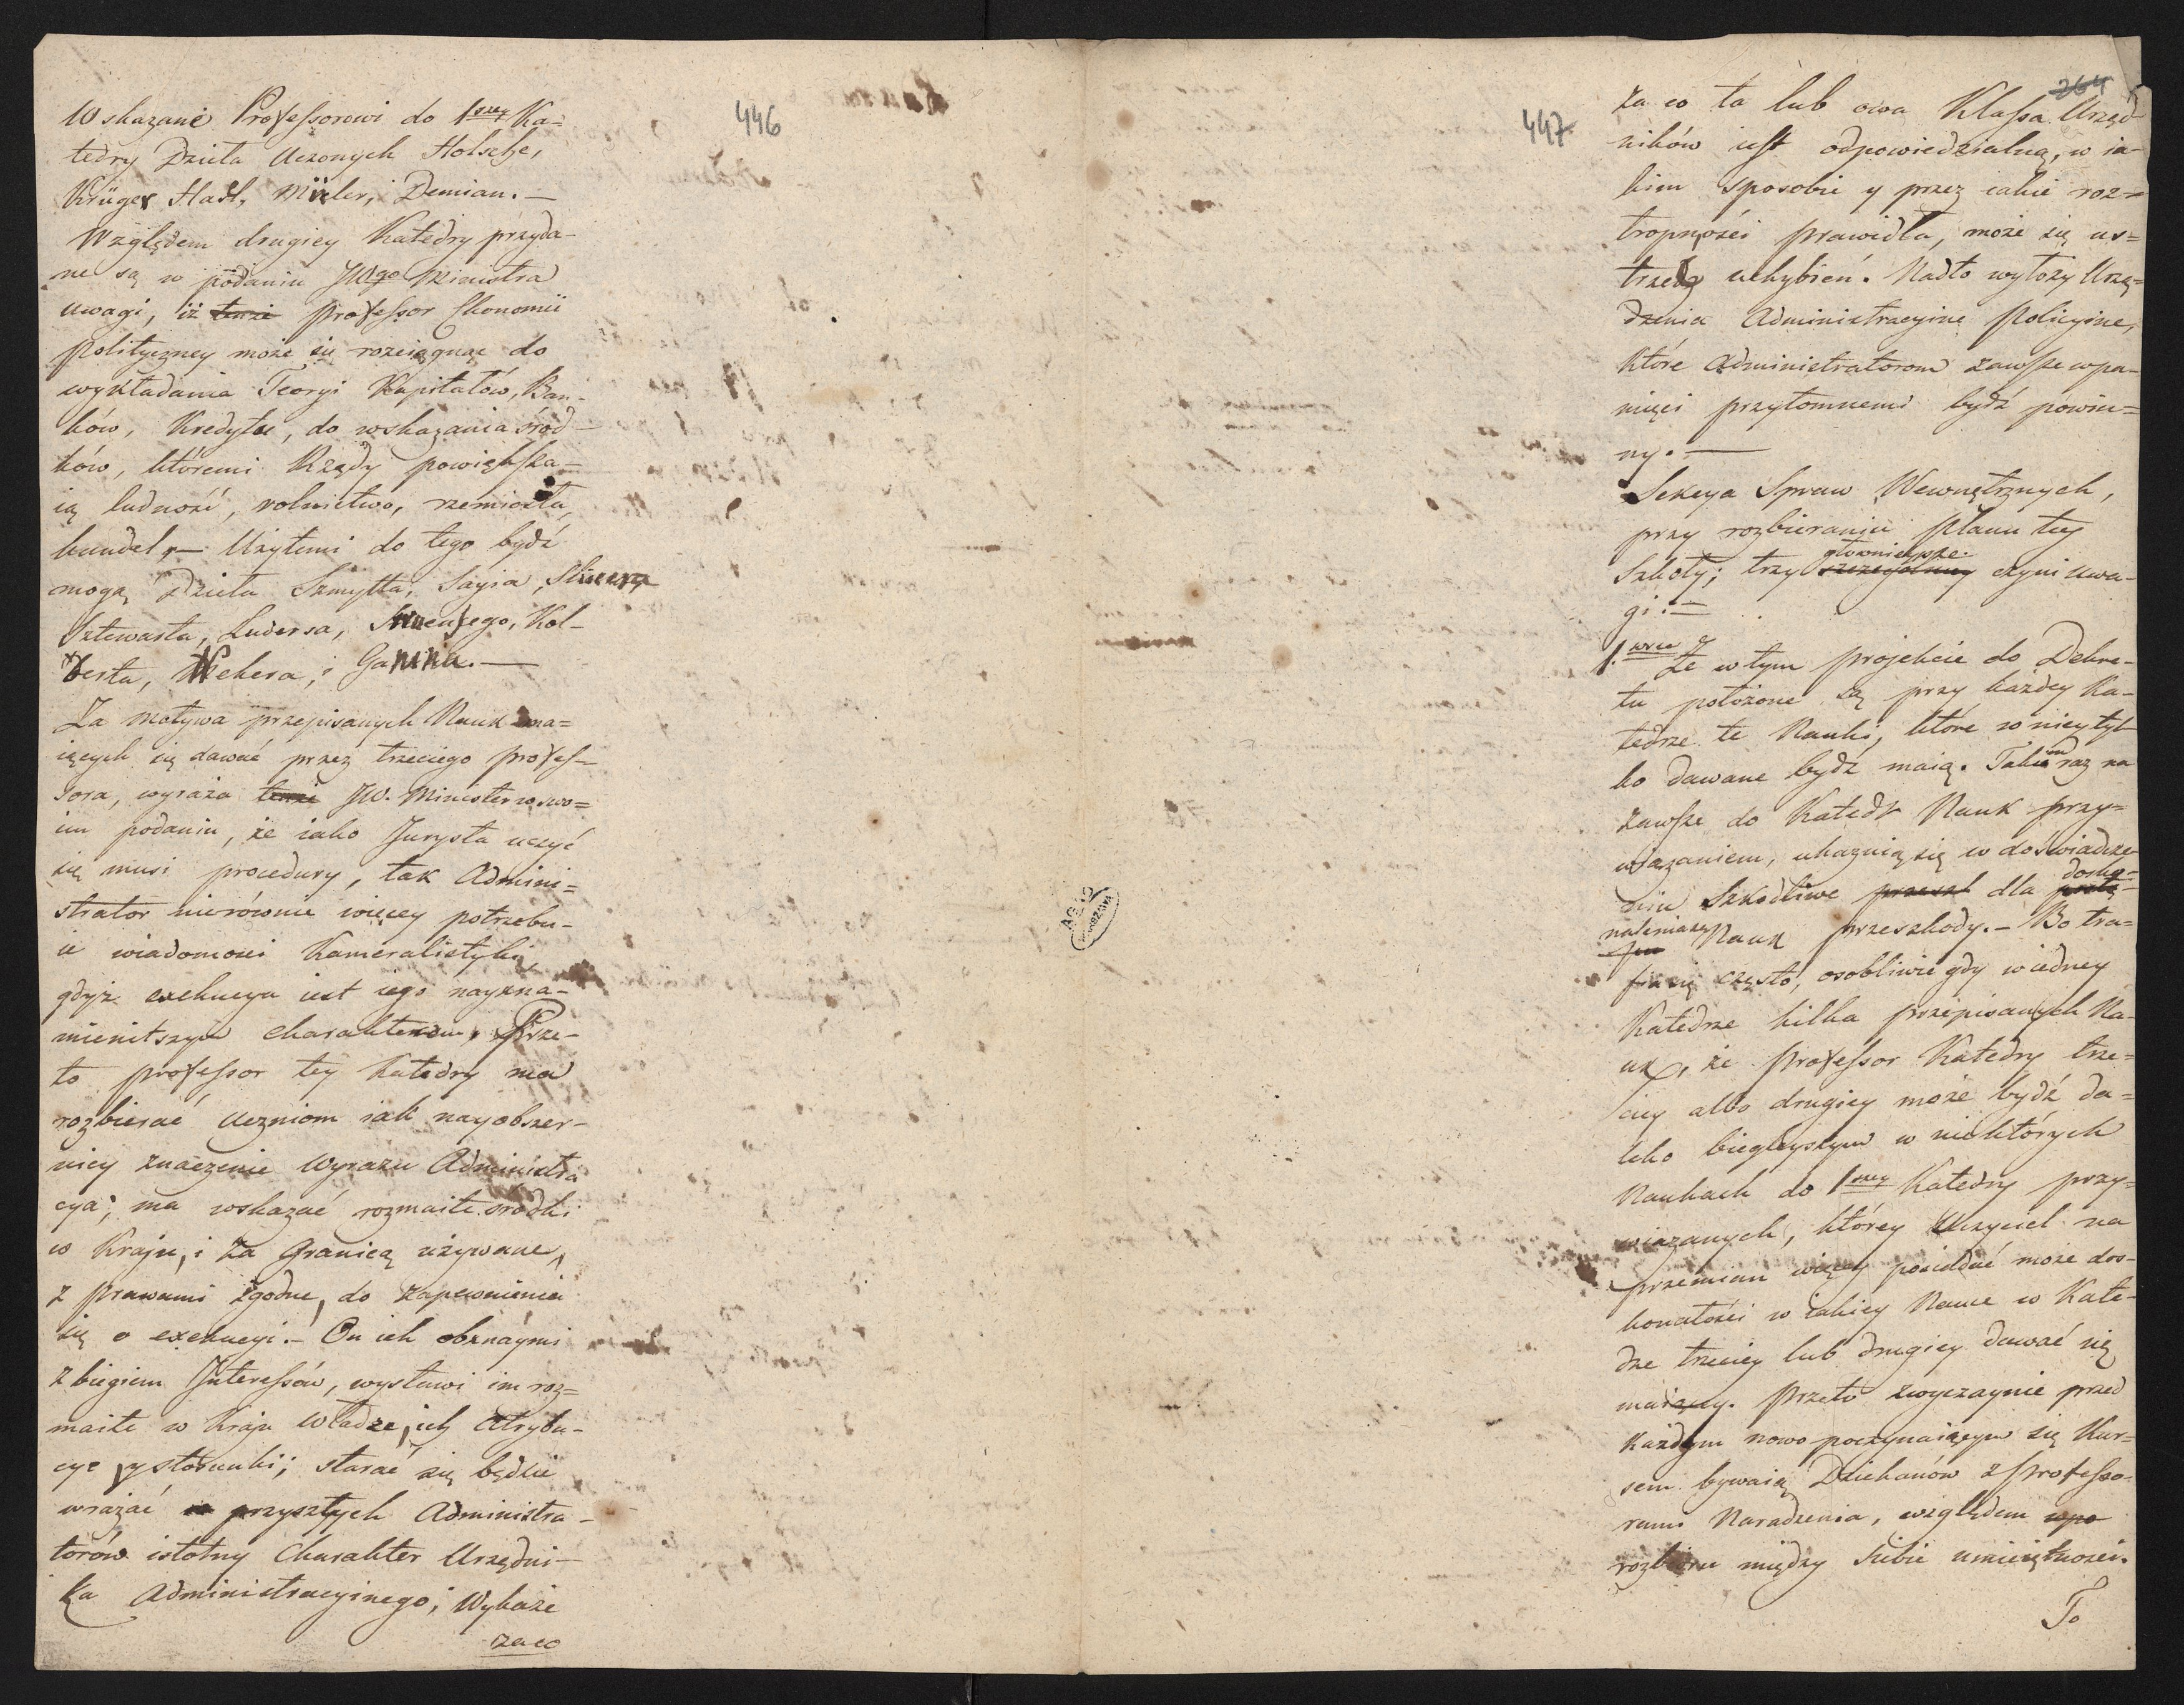 446
Wskazane Professorowi do 1szey Ka=
tedry Dzieła Uczonych Holsche,
Krüger Hasl, Müler, i Demian. —
Względem drugiey Katedry przyda-
ne są w podaniu JWgo Ministra
uwagi, iż tenże Professor Ekonomii
polityczney może się rozciągnąć do
wykładania Teoryi Kapitałów, Ban-
ków, Kredytu, do wskazania śród-
ków, któremi Rządy powiększa-
ią ludność, rolnictwo, rzemiosła,
handel, — Użytemi do tego bydź
mogą Dzieła Szmytta, Sayia,
Sztewarta, Ludersa, Kol-
berta, Nekera, i
Za motywa przepisanych Nauk ma=
iących się dawać przez trzeciego profes-
sora, wyraża tenże JW. Minister w swo=
im podaniu, że iako Jurysta uczyć
się musi procedury, tak Admini=
strator nierównie więcey potrzebu-
ie wiadomości Kameralistyki,
gdyż exekucya iest iego nayzna-
mienitszym charakterem. Prze-
to professor tey Katedry ma
rozbierać Uczniom iak nayobszer-
niey znaczenie Wyrazu Administra
cya; ma wskazać rozmaite środki
w Kraju, i za Granicą używane,
z prawami zgodne, do zapewnienia
się o exekucyi. — On ich obznaymi
z biegiem Interessów, wystawi im roz=
maite w kraju Władze, ich Atrybu-
cye y stosunki; starać się będzie
wrażać w przyszłych Administra-
torów istotny Charakter Urzędni-
ka Administracyinego; Wykaże
za co
447
264
za co ta lub owa Klassa Urzęd-
ników iest odpowiedzialną, w ia-
kim sposobie y przez iakie roz=
tropności prawidła, może się us=
trzedz uchybień. Nadto wyłoży Urzą=
dzenia Administracyine Policyine,
które Administratorom zawsze w pa-
mięci przytomnemi bydź powin=
ny. —
Sekcya Spraw Wewnętrznych,
przy rozbieraniu planu tey
głównieysze
Szkoły; trzy szczególney czyni uwa-
gi: —
1. wsze Że w tym projekcie do Dekre-
tu położone są przy każdey Ka-
tedrze te Nauki, które w niey tyl-
ko dawane bydź maią. Takiem raz na
zawsze do Katedr Nauk przy=
wiązaniem, ukaznią się w doświadcze-
dosko-
niu szkodliwe przeszk dla postę-
nalenia Nauk przeszkody. — Bo tra-
fia się często, osobliwie gdy w iedney
Katedrze kilka przepisanych Na-
uk, że Professor Katedry trze=
ciey albo drugiey może bydź da=
leko biegleyszym w niektórych
Naukach do 1szey Katedry przy=
wiązanych, którey Uczyciel na
przemian więcey posiadać może dos-
konałości w iakiey Nauce w Kate-
drze trzeciey lub drugiey dawać się
maiącey. Przeto zwyczaynie przed
każdym nowo-poczynaiącym się Kur=
sem bywaią Dziekanów z Professo-
rami Naradzenia, względem wpo
rozbioru między siebie umieiętności.
To